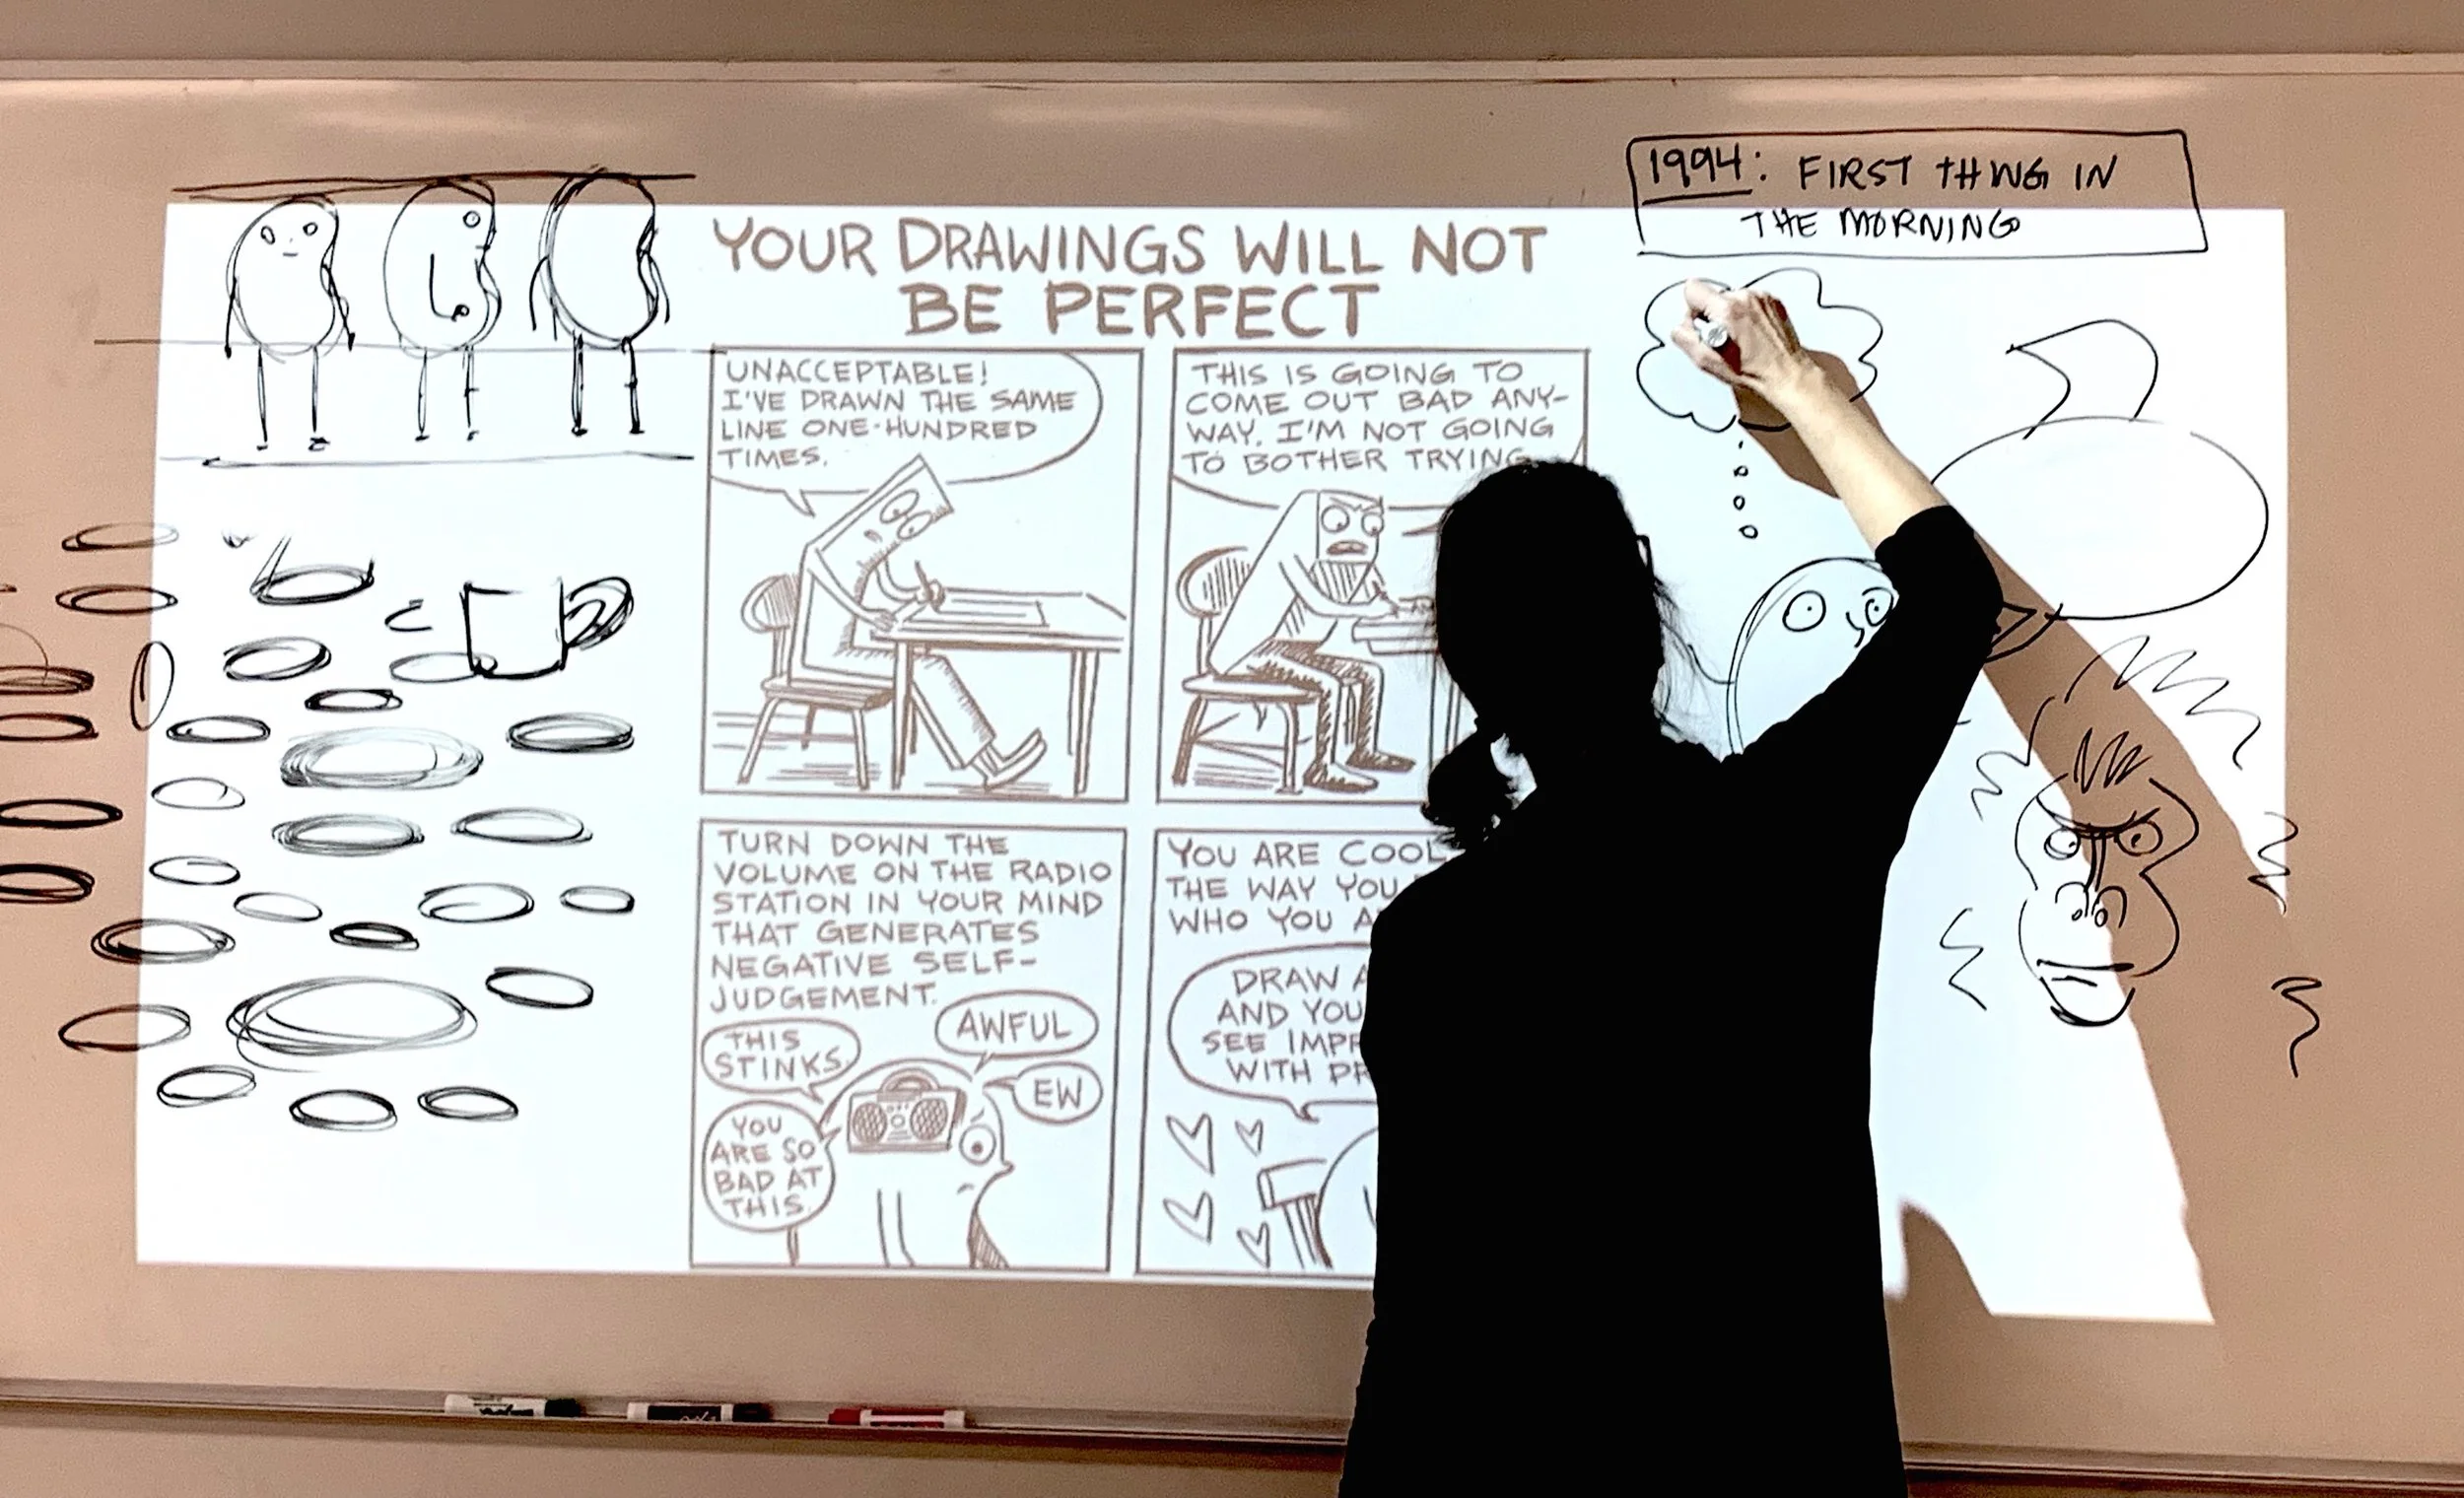 1994: FIRST THING IN
THE MORNING
YOUR DRAWINGS WILL NOT
BE PERFECT
UNACCEPTABLE!
I'VE DRAWN THE SAME
LINE ONE-HUNDRED
TIMES.
THIS IS GOING TO
COME OUT BAD ANY-
WAY. I'M NOT GOING
TO BOTHER TRYING
TURN DOWN THE
VOLUME ON THE RADIO
STATION IN YOUR MIND
THAT GENERATES
NEGATIVE SELF-
JUDGEMENT.
THIS
STINKS
AWFUL
EW
YOU
ARE SO
BAD AT
THIS.
YOU ARE COOL
THE WAY YOU
WHO YOU
DRAW
AND YOU
SEE
WITH